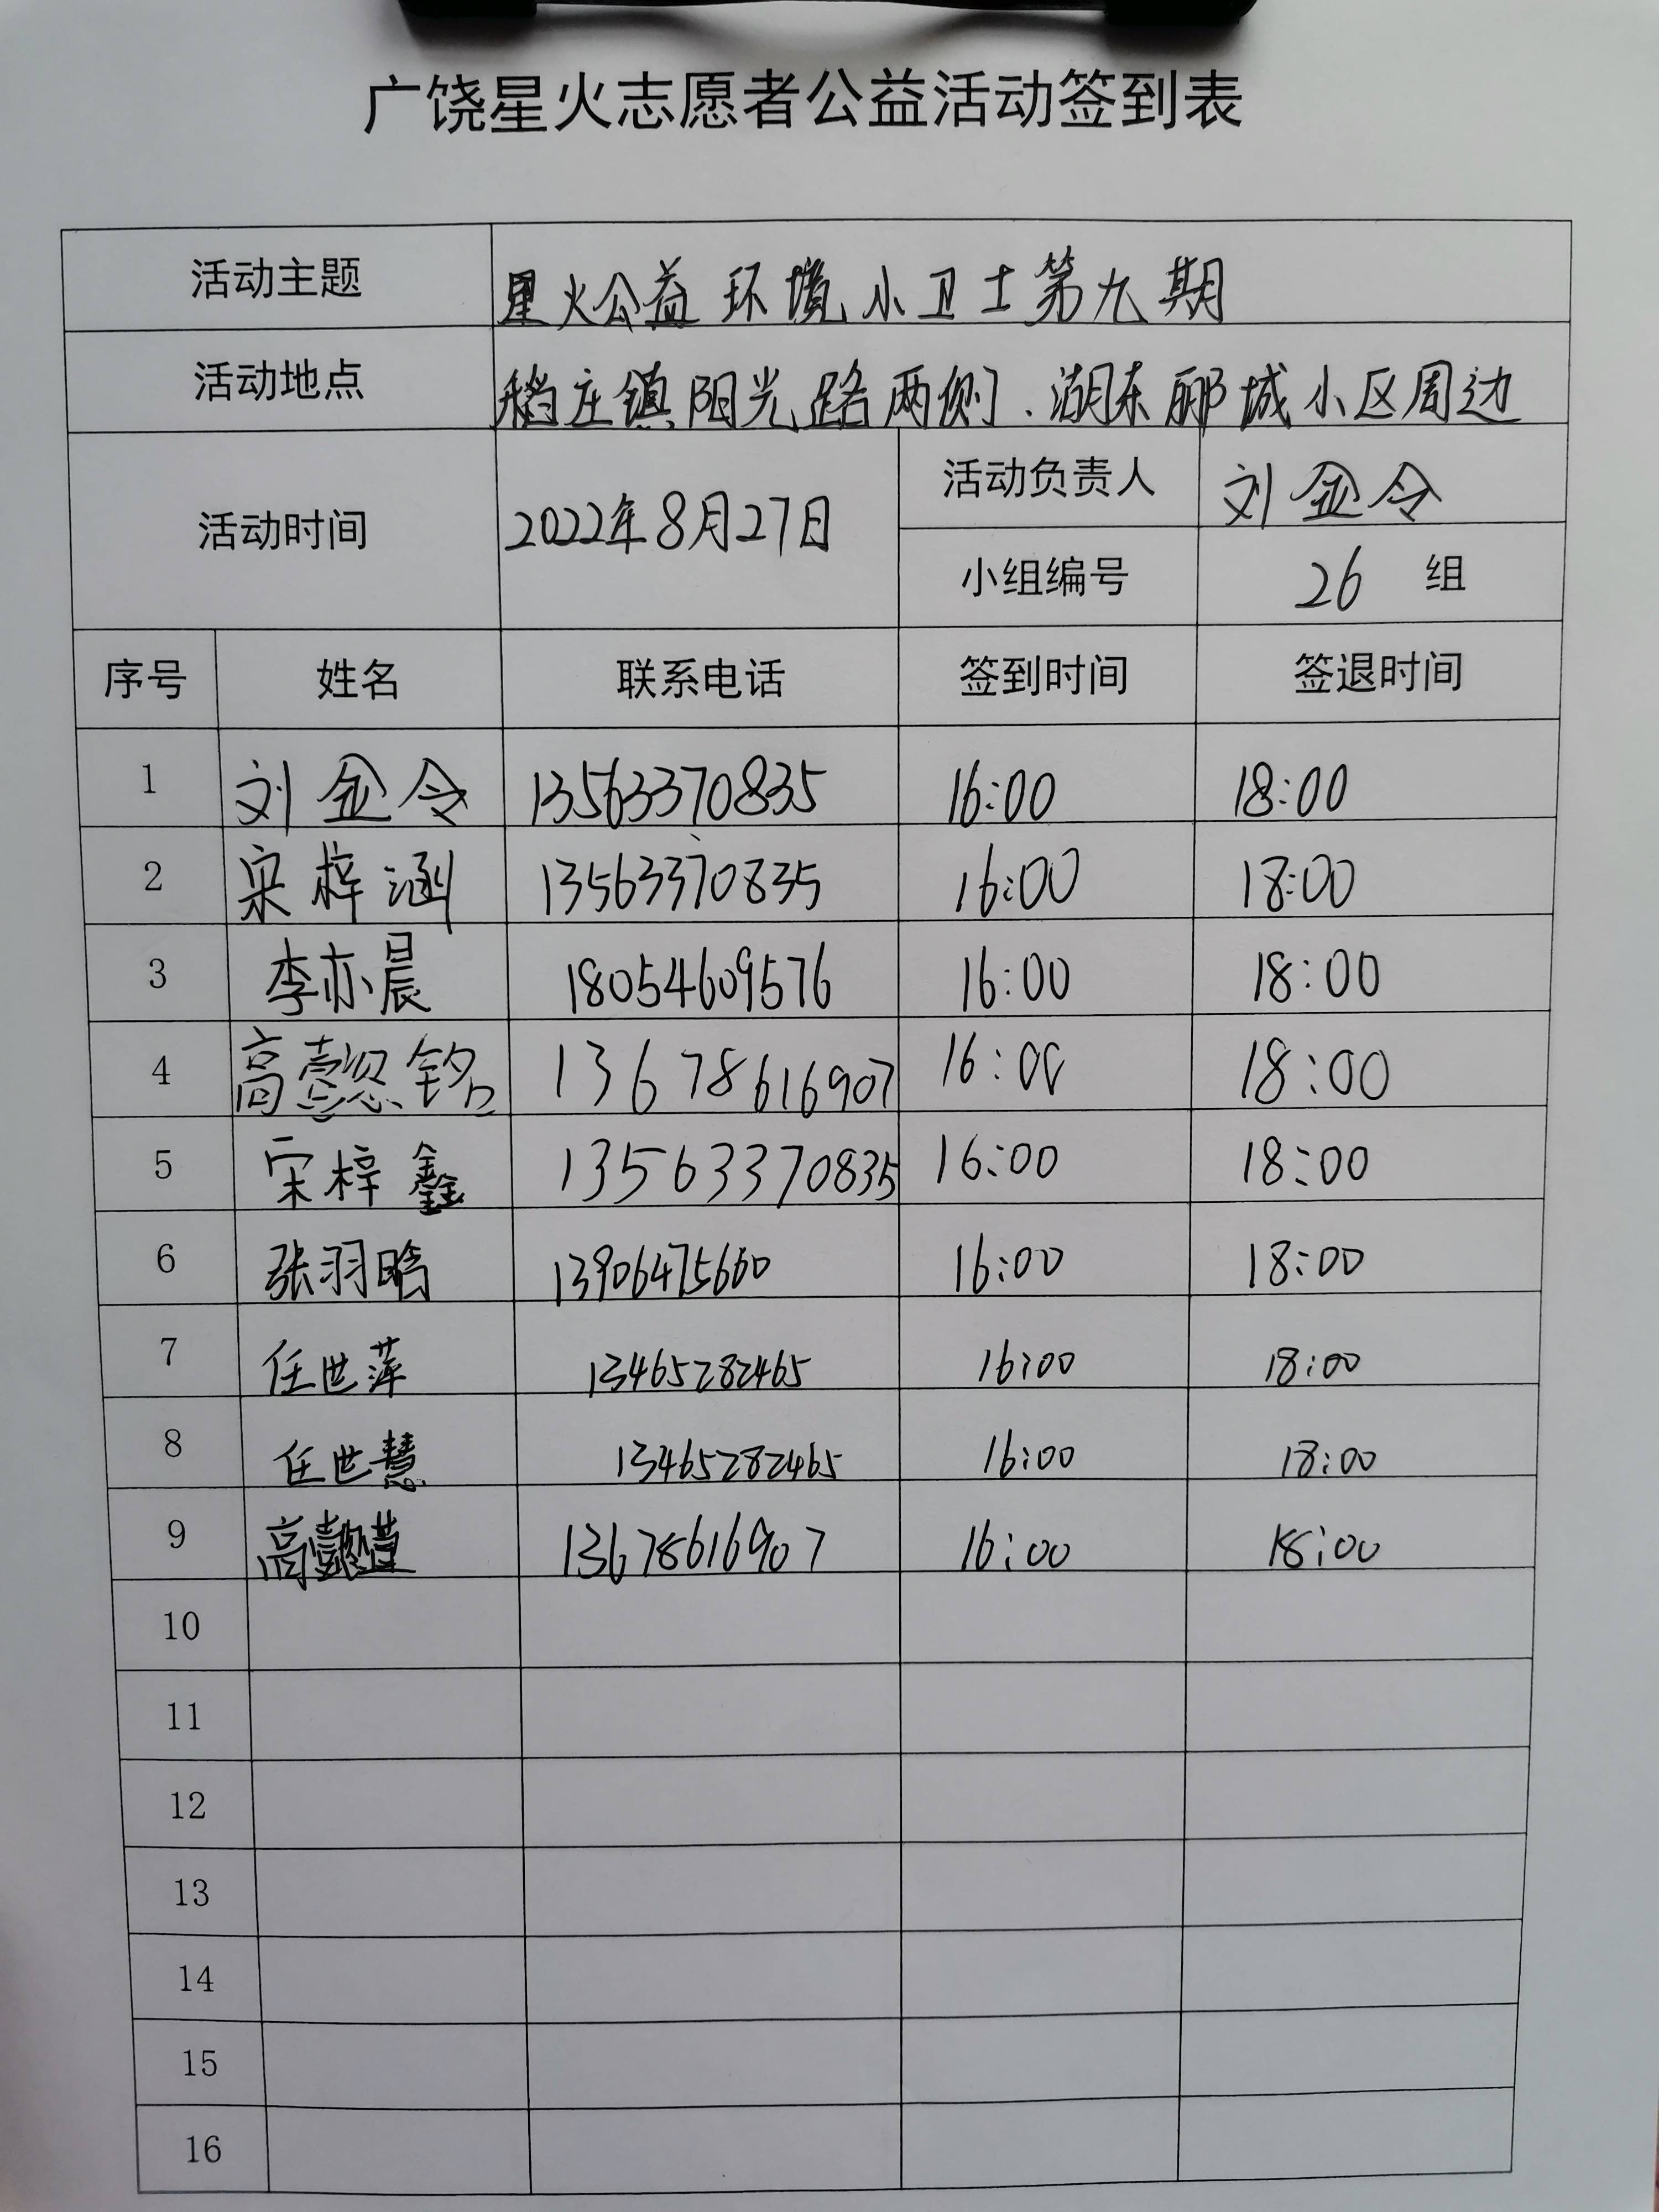 广饶星火志愿者公益活动签到表
活动主题 星火公益 环境小卫士第九期
活动地点 稻庄镇阳光路两侧、湖东郦城小区周边
活动时间 2022年8月27日 活动负责人 刘金令
小组编号 26 组
序号 姓名 联系电话 签到时间 签退时间
1 刘金令 13563370835 16:00 18:00
2 宋梓涵 13563370835 16:00 18:00
3 李亦晨 18054609576 16:00 18:00
4 高懿铭 13678616907 16:00 18:00
5 宋梓鑫 13563370835 16:00 18:00
6 张羽晗 13906475660 16:00 18:00
7 任世萍 13465282465 16:00 18:00
8 任世慧 13465282465 16:00 18:00
9 高懿 13678616907 16:00 18:00
10
11
12
13
14
15
16